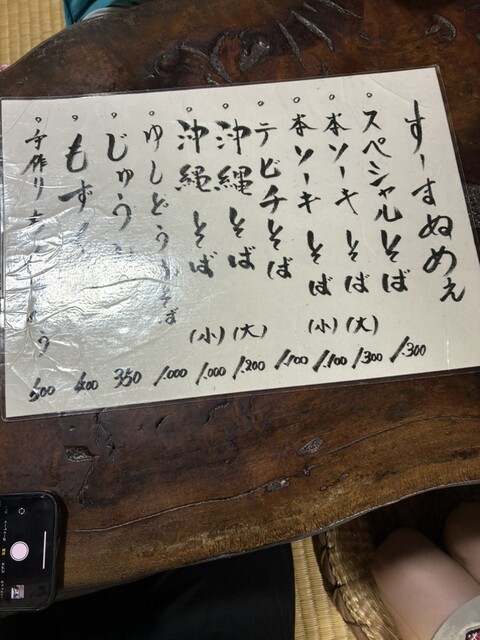 すーすぬめぇ
。スペシャルそば 1.300
。本ソーキそば (大) 1.300
。本ソーキそば (小) 1.100
。テビチそば 1.100
。沖縄そば (大) 1.200
。沖縄そば (小) 1.000
。ゆしどうふそば 1.000
。じゅうし 350
。もずく 400
。手作り 500